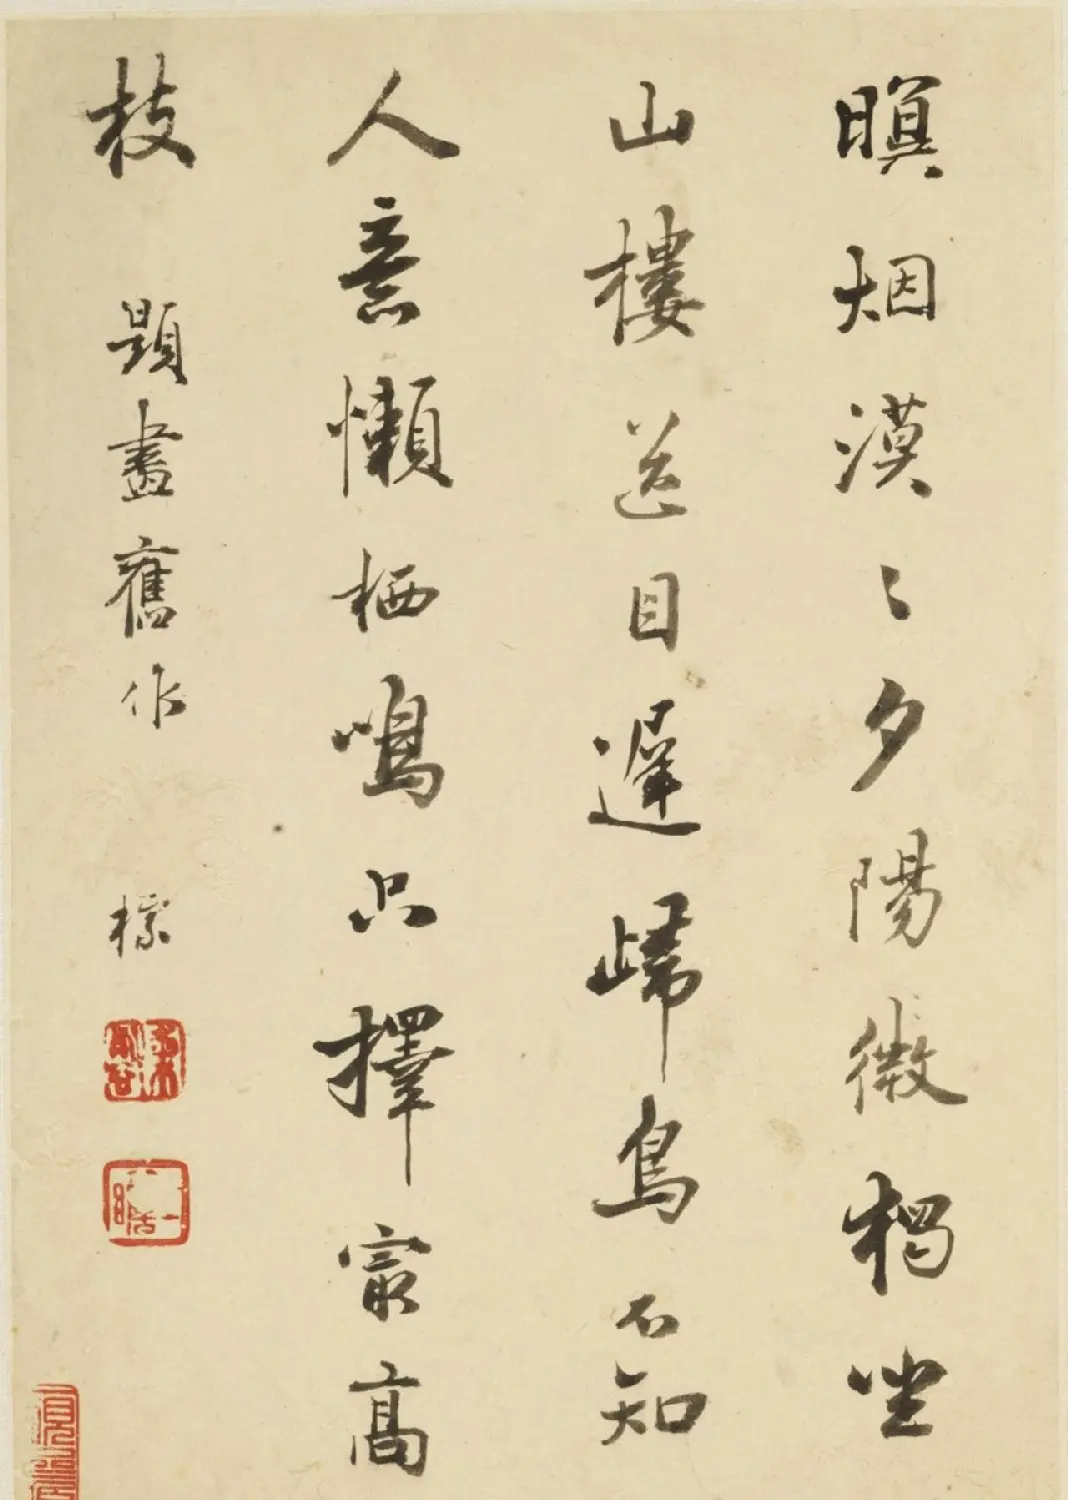 暝烟漠〻夕陽微獨坐
山樓送目遲歸鳥不知
人意懶栖鳴只擇最高
枝 題畫舊作 標